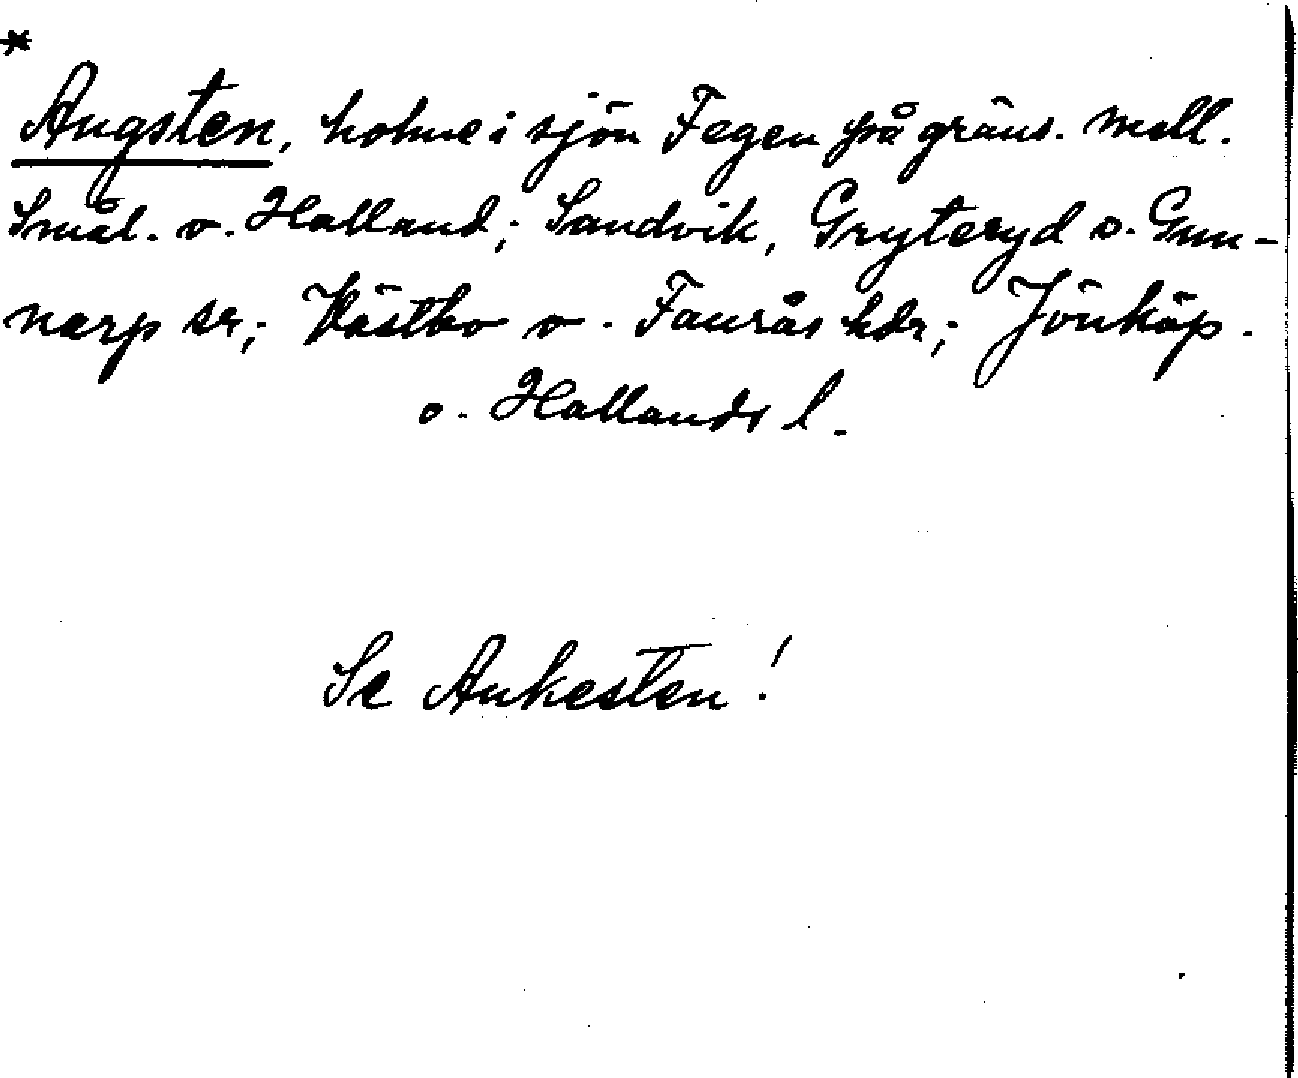 *
Angsten, holme i sjön Fegen på gräns. mell.
Smål. o. Halland; Sandvik, Gryteryd o. Gun-
narp sr; Västbo o. Faurås hdr; Jönköp.
o. Hallands l.
Se Ankesten!